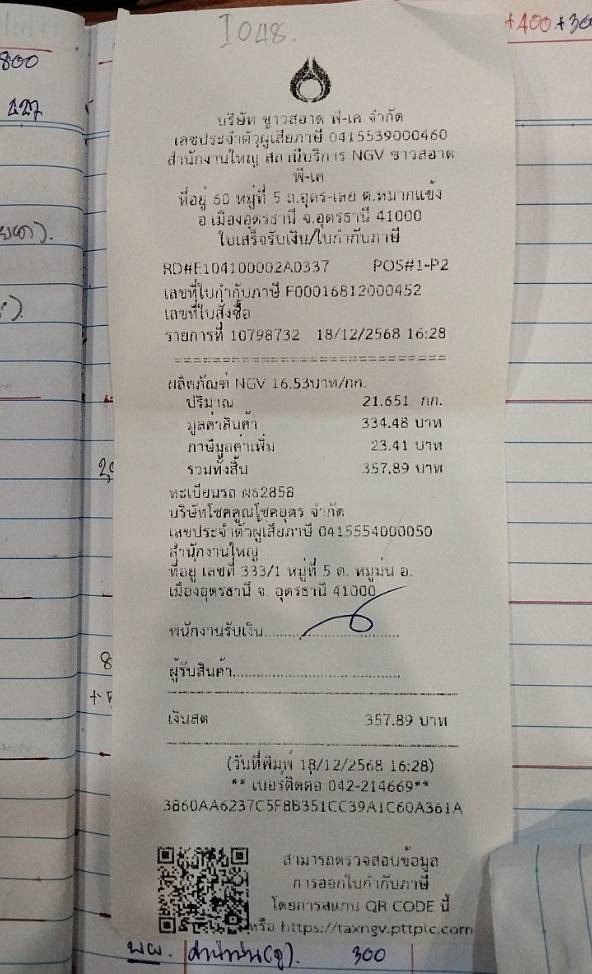 +400 +300
800
227
I048.
บริษัท ขาวสอาด พี-เค จำกัด
เลขประจำตัวผู้เสียภาษี 0415539000460
สำนักงานใหญ่ สถานีบริการ NGV ขาวสอาด
พี-เค
ที่อยู่ 60 หมู่ที่ 5 ถ.อุดร-เลย ต.หมากแข้ง
อ.เมืองอุดรธานี จ.อุดรธานี 41000
ใบเสร็จรับเงิน/ใบกำกับภาษี
RD#E104100002A0337 POS#1-P2
เลขที่ใบกำกับภาษี F00016812000452
เลขที่ใบสั่งซื้อ
รายการที่ 10798732 18/12/2568 16:28
==============================
ผลิตภัณฑ์ NGV 16.53บาท/กก.
ปริมาณ 21.651 กก.
มูลค่าสินค้า 334.48 บาท
ภาษีมูลค่าเพิ่ม 23.41 บาท
รวมทั้งสิ้น 357.89 บาท
ทะเบียนรถ ผธ2858
บริษัทโชคคูณโชคอุดร จำกัด
เลขประจำตัวผู้เสียภาษี 0415554000050
สำนักงานใหญ่
ที่อยู่ เลขที่ 333/1 หมู่ที่ 5 ต. หมูม่น อ.
เมืองอุดรธานี จ. อุดรธานี 41000
พนักงานรับเงิน......................
ผู้รับสินค้า............................
เงินสด 357.89 บาท
(วันที่พิมพ์ 18/12/2568 16:28)
** เบอร์ติดต่อ 042-214669**
3860AA6237C5F8B351CC39A1C60A361A
สามารถตรวจสอบข้อมูล
การออกใบกำกับภาษี
โดยการสแกน QR CODE นี้
หรือ https://taxngv.pttplc.com
300